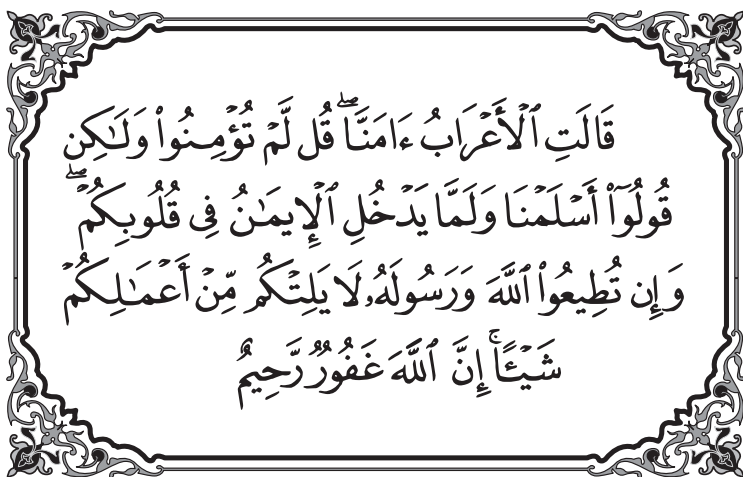 قَالَتِ ٱلْأَعْرَابُ ءَامَنَّاۖ قُل لَّمْ تُؤْمِنُوا۟ وَلَـٰكِن
قُولُوٓا۟ أَسْلَمْنَا وَلَمَّا يَدْخُلِ ٱلْإِيمَـٰنُ فِى قُلُوبِكُمْۖ
وَإِن تُطِيعُوا۟ ٱللَّهَ وَرَسُولَهُۥ لَا يَلِتْكُم مِّنْ أَعْمَـٰلِكُمْ
شَيْـًٔاۚ إِنَّ ٱللَّهَ غَفُورٌ رَّحِيمٌ